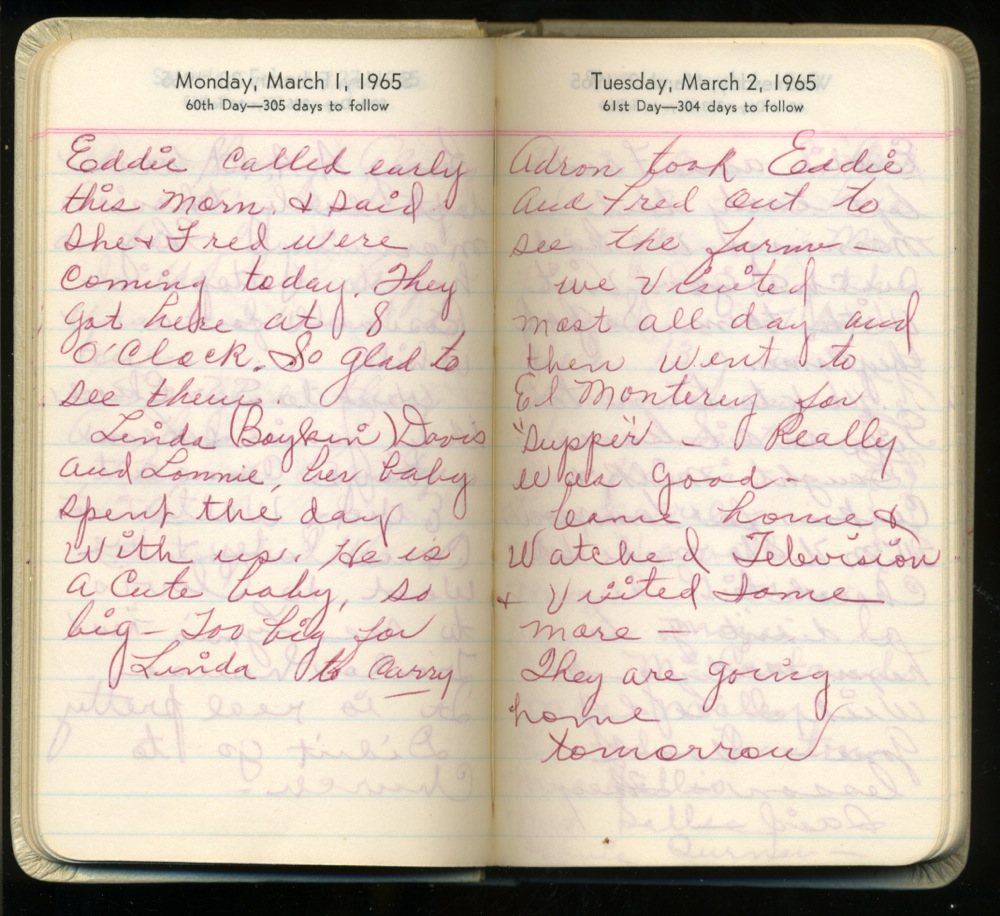 Monday, March 1, 1965
60th Day—305 days to follow
Eddie called early
this morn. & said
she & Fred were
coming today. They
got here at 8
O'Clock. So glad to
see them.
Linda (Boykin) Davis
and Lonnie, her baby
spent the day
with us. He is
a cute baby, so
big - Too big for
Linda to carry
Tuesday, March 2, 1965
61st Day—304 days to follow
Adron took Eddie
and Fred out to
see the farm -
we visited
most all day and
then went to
El Monterey for
"supper" - Really
was good -
came home &
Watched Television
& visited some
more -
They are going
home
tomorrow